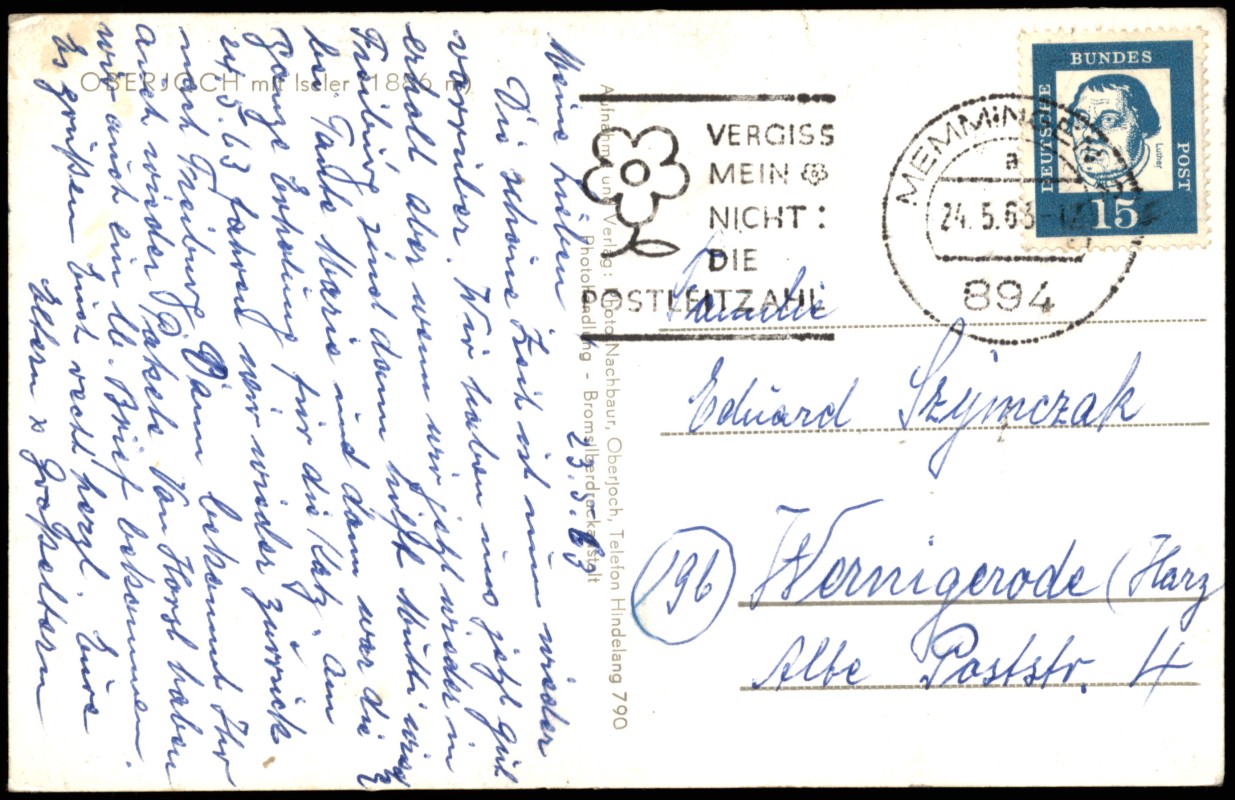 OBERJOCH mit Iseler (1886 m)
23.5.63
Meine Lieben
Die schöne Zeit ist nun wieder
vorrüber. Wir haben uns jetzt gut
erholt aber wenn wir jetzt wieder in
Freiburg sind dann hilft Mutti wied
bei Tante Maria und dann war die
ganze Erholung für die Katz. Am
24.5.63 fahren wir wieder zurück
nach Freiburg. Dann bekommt Ihr
auch wieder Pakete. Von Horst haben
wir auch ein lb. Brief bekommen.
Es grüßen Euch recht herzl. Eure
Eltern & Großeltern
Aufnahme und Verlag: Photo Nachbaur, Oberjoch, Telefon Hindelang 790
Photohandlung - Bromsilberdruckanstalt
VERGISS
MEIN
NICHT:
DIE
POSTLEITZAHL
MEMMINGEN
a
24.5.63
894
DEUTSCHE
BUNDES
POST
Luther
15
Familie
Eduard Szymczak
(196) Wernigerode (Harz
Albe Poststr. 4